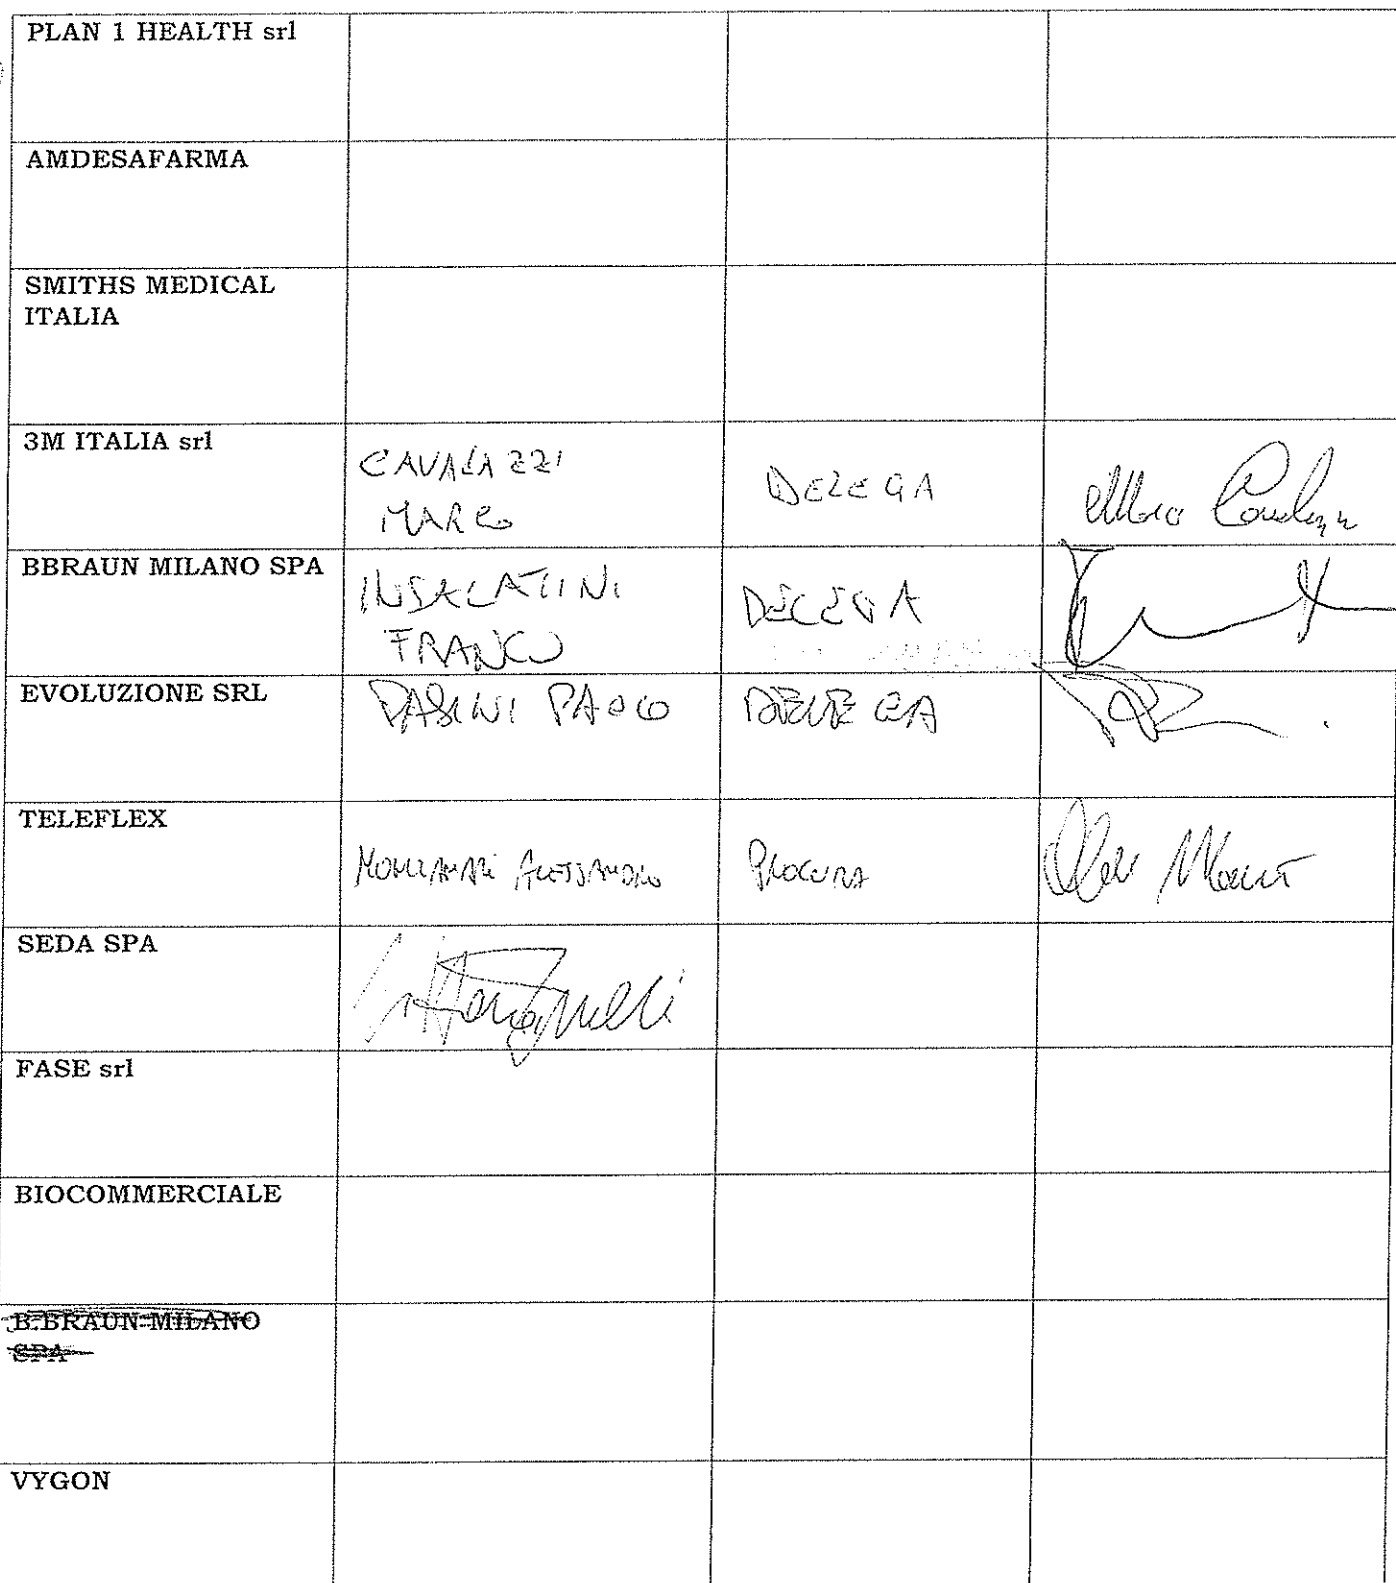 PLAN 1 HEALTH srl
AMDESAFARMA
SMITHS MEDICAL
ITALIA
3M ITALIA srl
CAVALAZZI
MARCO
DELEGA
BBRAUN MILANO SPA
INSALATINI
FRANCO
DELEGA
EVOLUZIONE SRL
PASINI PAOLO
DELEGA
TELEFLEX
ALESSANDRO
PROCURA
SEDA SPA
FASE srl
BIOCOMMERCIALE
B.BRAUN MILANO
SPA
VYGON